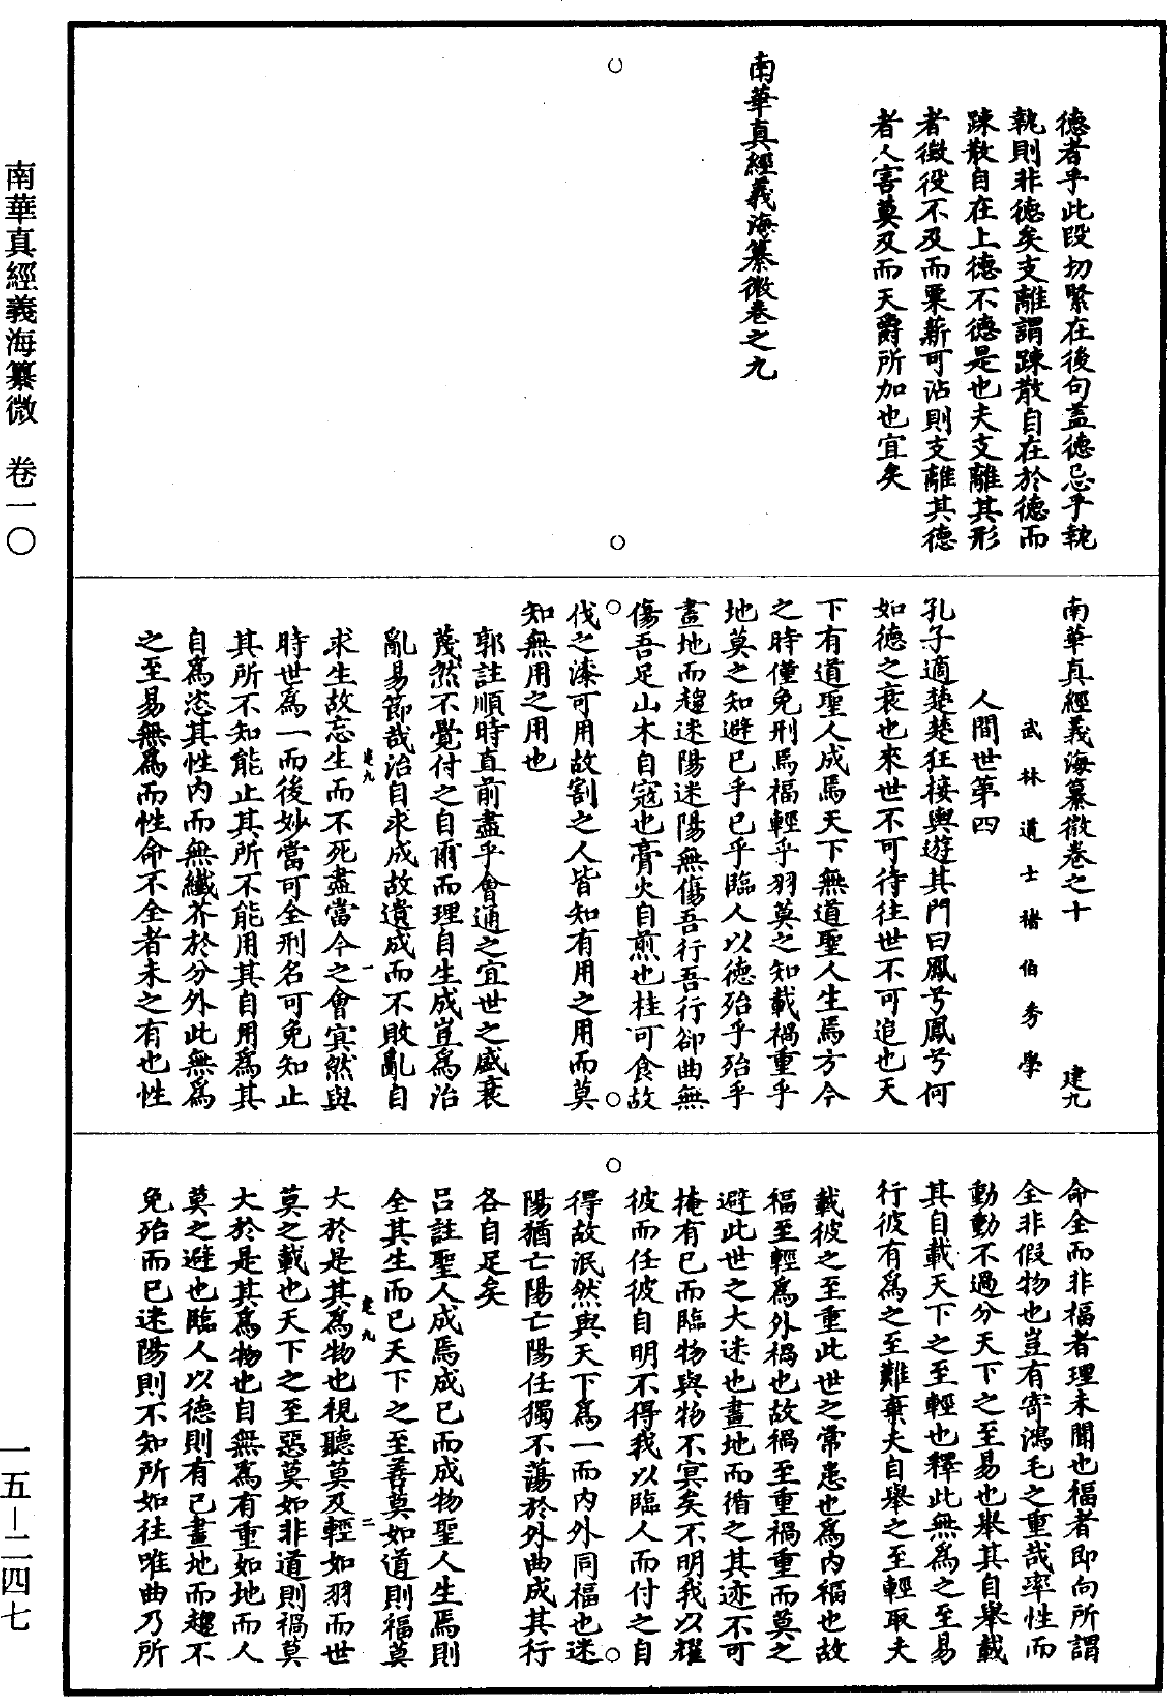 德者乎此段切緊在後句蓋德忌乎執
執則非德矣支離謂踈散自在於德而
踈散自在上德不德是也夫支離其形
者徵役不及而粟薪可沾則支離其德
者人害莫及而天爵所加也宜矣
南華真經義海纂微卷之九
南華真經義海纂微卷之十 建九
武林道士褚伯秀學
人間世第四
孔子適楚楚狂接輿遊其門曰鳳兮鳳兮何
如德之衰也來世不可待往世不可追也天
下有道聖人成焉天下無道聖人生焉方今
之時僅免刑焉福輕乎羽莫之知載禍重乎
地莫之知避已乎已乎臨人以德殆乎殆乎
畫地而趨迷陽迷陽無傷吾行吾行卻曲無
傷吾足山木自寇也膏火自煎也桂可食故
伐之漆可用故割之人皆知有用之用而莫
知無用之用也
郭註順時直前盡乎會通之宜世之盛衰
蔑然不覺付之自爾而理自生成豈為治
亂易節哉治自求成故遺成而不敗亂自
建九 一
求生故忘生而不死盡當今之會冥然與
時世為一而後妙當可全刑名可免知止
其所不知能止其所不能用其自用為其
自為恣其性內而無纖芥於分外此無為
之至易無為而性命不全者未之有也性
命全而非福者理未聞也福者即向所謂
全非假物也豈有寄鴻毛之重哉率性而
動動不過分天下之至易也舉其自舉載
其自載天下之至輕也釋此無為之至易
行彼有為之至難棄夫自舉之至輕取夫
載彼之至重此世之常患也為內福也故
福至輕為外禍也故禍至重禍重而莫之
避此世之大迷也畫地而循之其迹不可
掩有已而臨物與物不冥矣不明我以耀
彼而任彼自明不得我以臨人而付之自
得故泯然與天下為一而內外同福也迷
陽猶亡陽亡陽任獨不蕩於外曲成其行
各自足矣
呂註聖人成焉成已而成物聖人生焉則
全其生而已天下之至善莫如道則福莫
建九 二
大於是其為物也視聽莫及輕如羽而世
莫之載也天下之至惡莫如非道則禍莫
大於是其為物也自無為有重如地而人
莫之避也臨人以德則有已畫地而趨不
免殆而已迷陽則不知所如往唯曲乃所
南華真經義海纂微 卷一〇
一五-二四七